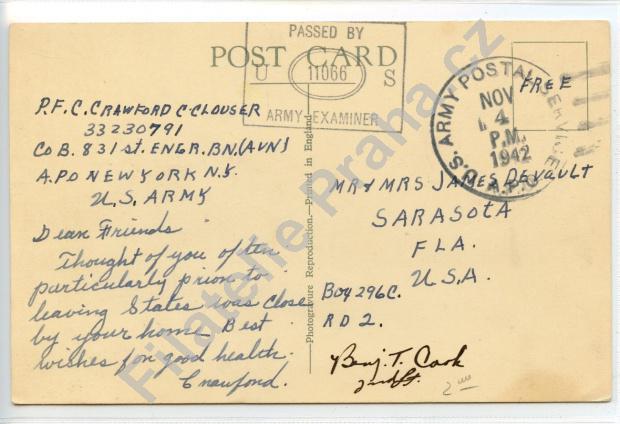 PASSED BY
POST CARD
U 11066 S
ARMY EXAMINER
U.S. ARMY POSTAL SERVICE
A.P.O.
NOV
4
P.M.
1942
FREE
P.F.C. CRAWFORD C. CLOUSER
33230791
CO B. 831st. ENGR. BN. (AVN)
A.P.O NEW YORK N.Y.
U.S. ARMY
Dear Friends
Thought of you often
particularly prior to
leaving States was close
by your home. Best
wishes for good health.
Crawford.
Photogravure Reproduction.—Printed in England
MR & MRS JAMES DEVAULT
SARASOTA
FLA.
U.S.A.
Box 296C.
RD 2.
Benj. T. Cook
2nd Lt.
Filatelie Praha.cz